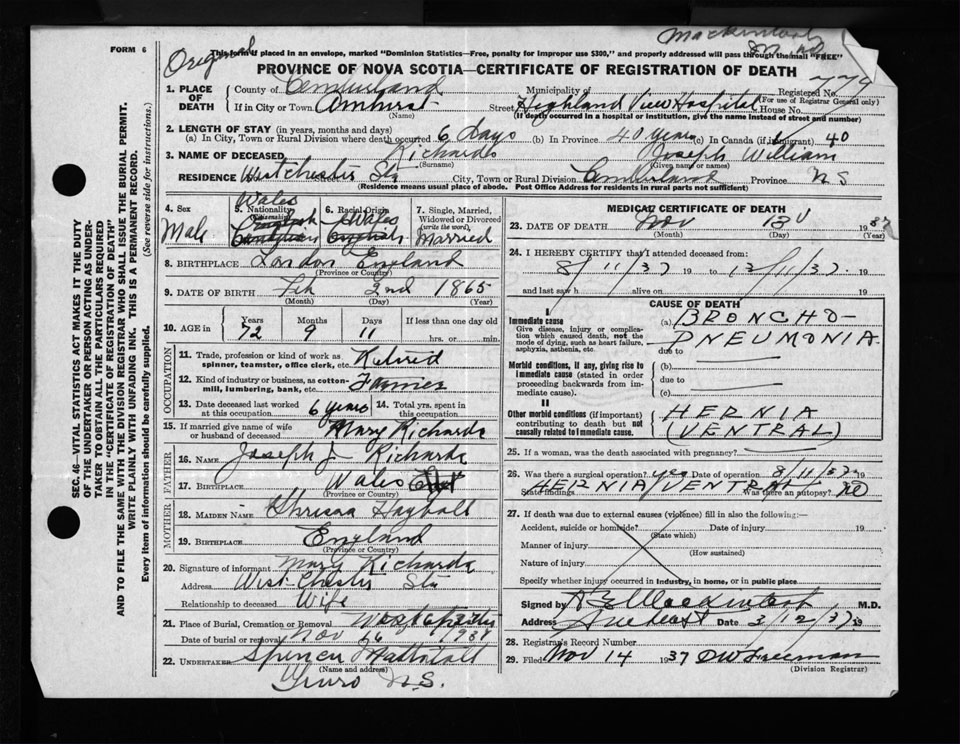 Mackintosh
FORM 6
Original
This form if placed in an envelope, marked "Dominion Statistics—Free, penalty for improper use $300," and properly addressed will pass through the mail "FREE"
PROVINCE OF NOVA SCOTIA—CERTIFICATE OF REGISTRATION OF DEATH
779
1. PLACE OF DEATH
County of Cumberland Municipality of Registered No.
(For use of Registrar General only)
If in City or Town Amherst Street Highland View Hospital House No.
(Name) (If death occurred in a hospital or institution, give the name instead of street and number)
2. LENGTH OF STAY (in years, months and days)
(a) In City, Town or Rural Division where death occurred 6 days (b) In Province 40 years (c) In Canada (if immigrant) 40
3. NAME OF DECEASED Richards Joseph William
(Surname) (Given name or names)
RESIDENCE Westchester Sta City, Town or Rural Division Cumberland Province N S
(Residence means usual place of abode. Post Office Address for residents in rural parts not sufficient)
4. Sex Male
5. Nationality (Citizenship) Wales
6. Racial Origin Wales
7. Single, Married, Widowed or Divorced (write the word) Married
8. BIRTHPLACE London England
(Province or Country)
9. DATE OF BIRTH Feb 2nd 1865
(Month) (Day) (Year)
10. AGE in Years Months Days If less than one day old
72 9 11 hrs. or min.
OCCUPATION
11. Trade, profession or kind of work as spinner, teamster, office clerk, etc. Retired
12. Kind of industry or business, as cotton-mill, lumbering, bank, etc. Farmer
13. Date deceased last worked at this occupation 6 years 14. Total yrs. spent in this occupation
15. If married give name of wife or husband of deceased Mary Richards
FATHER
16. NAME Joseph J Richards
17. BIRTHPLACE Wales
(Province or Country)
MOTHER
18. MAIDEN NAME
19. BIRTHPLACE England
(Province or Country)
20. Signature of informant Mary Richards
Address West Chester Sta
Relationship to deceased Wife
21. Place of Burial, Cremation or Removal
Date of burial or removal Nov 16 193
22. UNDERTAKER Spencer
(Name and address)
Truro N.S.
MEDICAL CERTIFICATE OF DEATH
23. DATE OF DEATH Nov 13 1937
(Month) (Day) (Year)
24. I HEREBY CERTIFY that I attended deceased from:
8/11/37 19 to 13/11/37 19
and last saw h alive on 19
CAUSE OF DEATH
I
Immediate cause
Give disease, injury or complication which caused death, not the mode of dying, such as heart failure, asphyxia, asthenia, etc.
(a) BRONCHO-
PNEUMONIA
due to
Morbid conditions, if any, giving rise to immediate cause (stated in order proceeding backwards from immediate cause).
(b)
due to
(c)
II
Other morbid conditions (if important) contributing to death but not causally related to immediate cause.
HERNIA
(VENTRAL)
25. If a woman, was the death associated with pregnancy?
26. Was there a surgical operation? yes Date of operation 8/11/37 19
State findings HERNIA VENTRAL Was there an autopsy? NO
27. If death was due to external causes (violence) fill in also the following:—
Accident, suicide or homicide? Date of injury 19
(State which)
Manner of injury
(How sustained)
Nature of injury
Specify whether injury occurred in industry, in home, or in public place
Signed by Mackintosh M.D.
Address Amherst Date 3/12/37 19
28. Registrar's Record Number
29. Filed Nov 14 1937 D W Freeman
(Division Registrar)
SEC. 46—VITAL STATISTICS ACT MAKES IT THE DUTY
OF THE UNDERTAKER OR PERSON ACTING AS UNDERTAKER
TO OBTAIN ALL THE PARTICULARS REQUIRED
IN THE "CERTIFICATE OF REGISTRATION OF DEATH"
AND TO FILE THE SAME WITH THE DIVISION REGISTRAR WHO SHALL ISSUE THE BURIAL PERMIT.
WRITE PLAINLY WITH UNFADING INK. THIS IS A PERMANENT RECORD.
Every item of information should be carefully supplied. (See reverse side for instructions.)